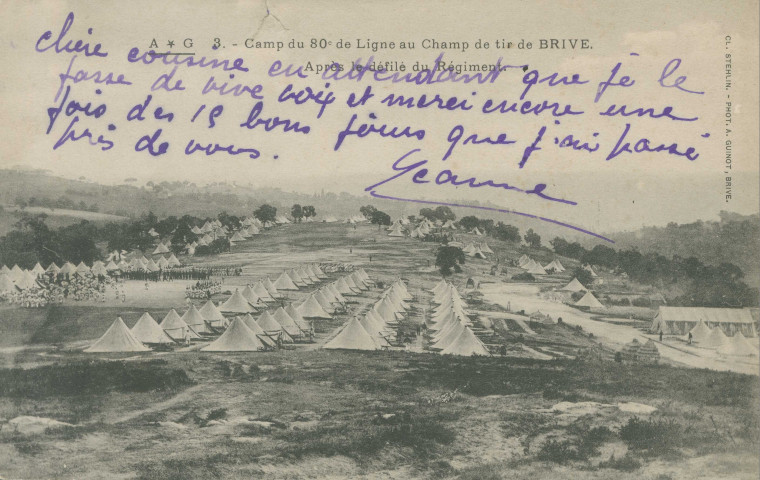 A ★ G 3. - Camp du 80e de Ligne au Champ de tir de BRIVE.
Après le défilé du Régiment.
chère cousine en attendant que je le
fasse de vive voix et merci encore une
fois des 15 bons jours que j'ai passé
près de vous.
Jeanne
CL. STEHLIN. - PHOT. A. GUINOT, BRIVE.